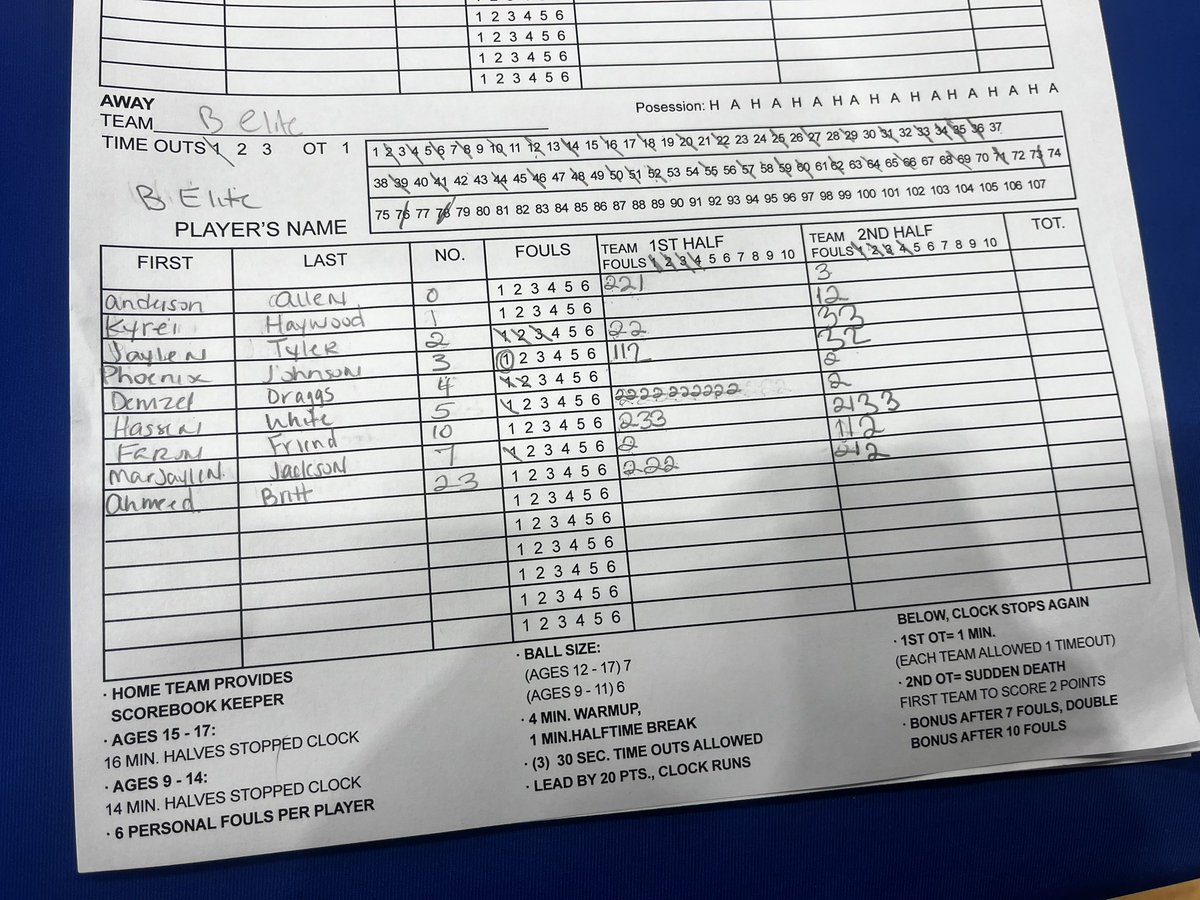 1 2 3 4 5 6
1 2 3 4 5 6
1 2 3 4 5 6
1 2 3 4 5 6
AWAY
TEAM B Elite
Posession: H A H A H A H A H A H A H A H A H A
TIME OUTS 1 2 3 OT 1
1 2 3 4 5 6 7 8 9 10 11 12 13 14 15 16 17 18 19 20 21 22 23 24 25 26 27 28 29 30 31 32 33 34 35 36 37
38 39 40 41 42 43 44 45 46 47 48 49 50 51 52 53 54 55 56 57 58 59 60 61 62 63 64 65 66 67 68 69 70 71 72 73 74
75 76 77 78 79 80 81 82 83 84 85 86 87 88 89 90 91 92 93 94 95 96 97 98 99 100 101 102 103 104 105 106 107
B Elite
PLAYER'S NAME
FIRST LAST NO. FOULS TEAM 1ST HALF FOULS 1 2 3 4 5 6 7 8 9 10 TEAM 2ND HALF FOULS 1 2 3 4 5 6 7 8 9 10 TOT.
anderson Allen 0 1 2 3 4 5 6 221 3
Kyrei Haywood 1 1 2 3 4 5 6 12
Jaylen Tyler 2 1 2 3 4 5 6 22 33
Phoenix Johnson 3 1 2 3 4 5 6 112 32
Denizel Draggs 4 1 2 3 4 5 6 2
Hassin White 5 1 2 3 4 5 6 2
Faron Friend 10 1 2 3 4 5 6 233 2133
Marjaylin Jackson 7 1 2 3 4 5 6 2 112
ahmeed Britt 23 1 2 3 4 5 6 222 212
1 2 3 4 5 6
1 2 3 4 5 6
1 2 3 4 5 6
1 2 3 4 5 6
1 2 3 4 5 6
1 2 3 4 5 6
· HOME TEAM PROVIDES
SCOREBOOK KEEPER
· AGES 15 - 17:
16 MIN. HALVES STOPPED CLOCK
· AGES 9 - 14:
14 MIN. HALVES STOPPED CLOCK
· 6 PERSONAL FOULS PER PLAYER
· BALL SIZE:
(AGES 12 - 17) 7
(AGES 9 - 11) 6
· 4 MIN. WARMUP,
1 MIN.HALFTIME BREAK
· (3) 30 SEC. TIME OUTS ALLOWED
· LEAD BY 20 PTS., CLOCK RUNS
BELOW, CLOCK STOPS AGAIN
· 1ST OT= 1 MIN.
(EACH TEAM ALLOWED 1 TIMEOUT)
· 2ND OT= SUDDEN DEATH
FIRST TEAM TO SCORE 2 POINTS
· BONUS AFTER 7 FOULS, DOUBLE
BONUS AFTER 10 FOULS